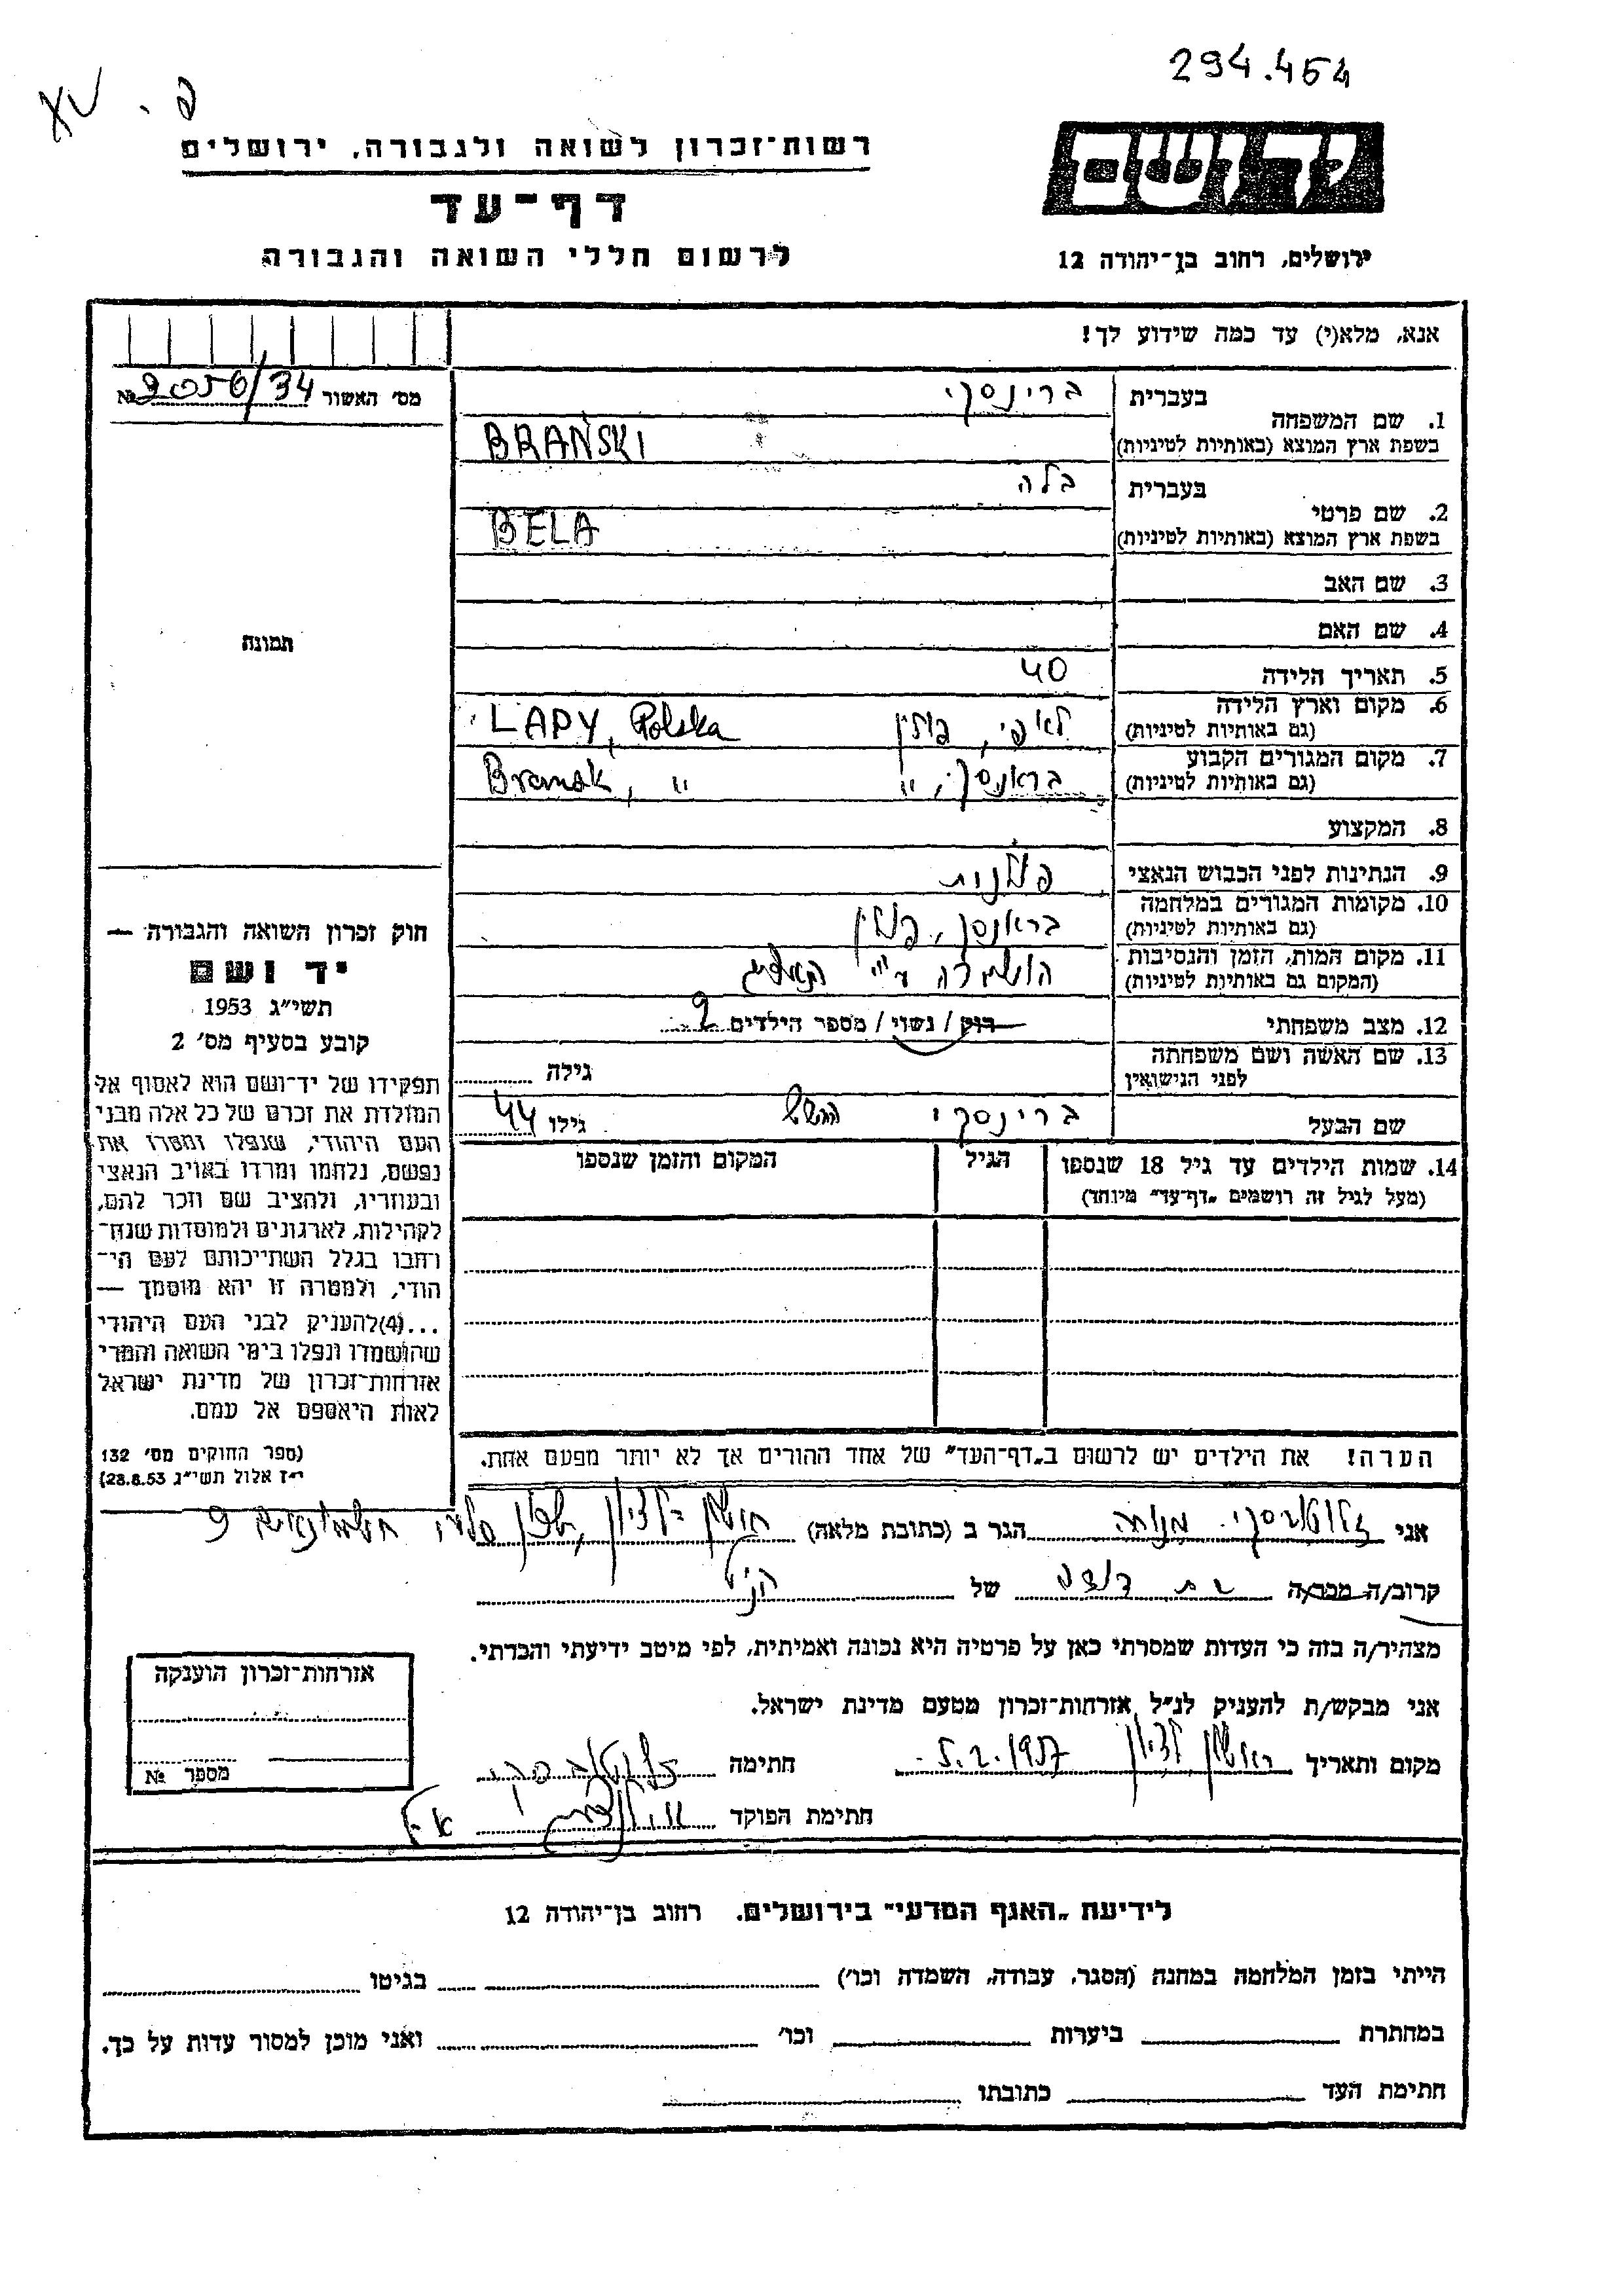 294.454
פ. XV
רשות־זכרון לשואה ולגבורה, ירושלים
דף־עד
לרשום חללי השואה והגבורה
ידושם
ירושלים, רחוב בן־יהודה 12
אנא, מלא(י) עד כמה שידוע לך!
מס׳ האשור № 2056/34
תמונה
1. שם המשפחה בעברית ברינסקי
בשפת ארץ המוצא (באותיות לטיניות) BRAŃSKI
2. שם פרטי בעברית בלה
בשפת ארץ המוצא (באותיות לטיניות) BELA
3. שם האב
4. שם האם
5. תאריך הלידה 40
6. מקום וארץ הלידה לאפי, פולין LAPY, Polska
(גם באותיות לטיניות)
7. מקום המגורים הקבוע בראנסק, " Bransk, "
(גם באותיות לטיניות)
8. המקצוע
9. הנתינות לפני הכבוש הנאצי פולנית
10. מקומות המגורים במלחמה בראנסק, פולין
(גם באותיות לטיניות)
11. מקום המות, הזמן והנסיבות הושמדה ע"י
(המקום גם באותיות לטיניות)
12. מצב משפחתי רוק / נשוי / מספר הילדים 2
13. שם האשה ושם משפחתה גילה
לפני הנישואין
שם הבעל ברינסקי הרשל גילו 44
14. שמות הילדים עד גיל 18 שנספו הגיל המקום והזמן שנספו
(מעל לגיל זה רושמים „דף־עד״ מיוחד)
הערה! את הילדים יש לרשום ב„דף־העד״ של אחד ההורים אך לא יותר מפעם אחת.
חוק זכרון השואה והגבורה —
יד ושם
תשי״ג 1953
קובע בסעיף מס׳ 2
תפקידו של יד־ושם הוא לאסוף אל
המולדת את זכרם של כל אלה מבני
העם היהודי, שנפלו ומסרו את
נפשם, נלחמו ומרדו באויב הנאצי
ובעוזריו, ולהציב שם וזכר להם,
לקהילות, לארגונים ולמוסדות שנח־
רבו בגלל השתייכותם לעם הי־
הודי, ולמטרה זו יהא מוסמך —
...(4)להעניק לבני העם היהודי
שהושמדו ונפלו בימי השואה והמרי
אזרחות־זכרון של מדינת ישראל
לאות היאספם אל עמם.
(ספר החוקים מס׳ 132
י״ז אלול תשי״ג 28.8.53)
אני זלוטובסקי מנוחה הגר ב (כתובת מלאה) ראשון לציון, שכון 9
קרוב/ה מכר/ה בת דודה של הנ"ל
מצהיר/ה בזה כי העדות שמסרתי כאן על פרטיה היא נכונה ואמיתית, לפי מיטב ידיעתי והכרתי.
אני מבקש/ת להעניק לנ״ל אזרחות־זכרון מטעם מדינת ישראל.
מקום ותאריך ראשון לציון 5.2.1957 חתימה זלוטובסקי
חתימת הפוקד
אזרחות־זכרון הוענקה
מספר №
לידיעת „האגף המדעי״ בירושלים. רחוב בן־יהודה 12
הייתי בזמן המלחמה במחנה (הסגר, עבודה, השמדה וכו׳) בגיטו
במחתרת ביערות וכו׳ ואני מוכן למסור עדות על כך.
חתימת העד כתובתו